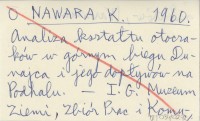 O NAWARA K. 1960.
Analiza kształtu otocza-
ków w górnym biegu Du-
najca i jego dopływów na
Podhalu. — I. G. Muzeum
Ziemi, Zbiór Prac i Komu-